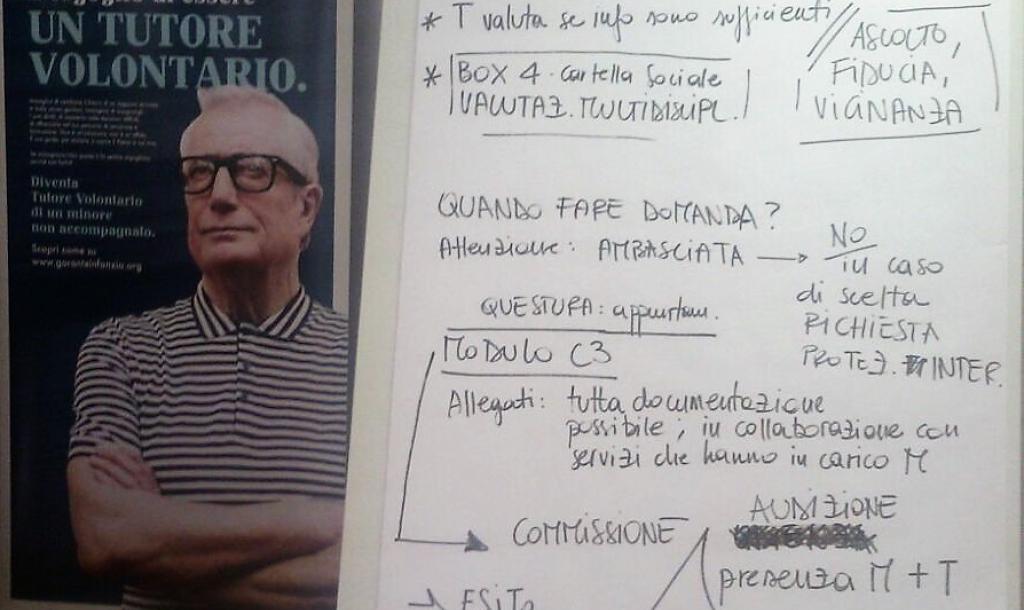 di essere
UN TUTORE
VOLONTARIO.
Diventa
Tutore Volontario
di un minore
non accompagnato.
Scopri come su
www.garanteinfanzia.org
* T valuta se info sono sufficienti
* BOX 4 - Cartella Sociale
VALUTAZ. MULTIDISCIPL.
ASCOLTO,
FIDUCIA,
VICINANZA
QUANDO FARE DOMANDA?
Attenzione: AMBASCIATA → NO
in caso
di scelta
RICHIESTA
PROTEZ. INTER.
QUESTURA: appuntam.
MODULO C3
Allegati: tutta documentazione
possibile, in collaborazione con
servizi che hanno in carico M
COMMISSIONE
AUDIZIONE
presenza M + T
→ ESITO